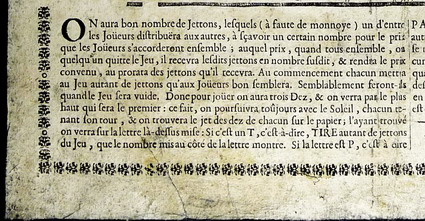 ON aura bon nombre de Jettons, lesquels ( à faute de monnoye ) un d'entre
les Joüeurs distribuëra aux autres, à sçavoir un certain nombre pour le prix
que les Joüeurs s'accorderont ensemble ; auquel prix, quand tous ensemble, ou
quelqu'un quitte le Jeu, il recevra lesdits jettons en nombre susdit, & rendra le prix
convenu, au prorata des jettons qu'il recevra. Au commencement chacun mettra
au Jeu autant de jettons qu'aux Joüeurs bon semblera. Semblablement feront-ils
quand le Jeu sera vuide. Donc pour joüer on aura trois Dez, & on verra par le plus
haut qui sera le premier : ce fait, on poursuivra tousjours avec le Soleil, chacun te-
nant son tour, & on trouvera le jet des dez de chacun sur le papier; l'ayant trouvé
on verra sur la lettre là-dessus mise : Si c'est un T, c'est-à-dire, TIRE autant de jettons
du Jeu, que le nombre mis au côté de la lettre montre. Si la lettre est P, c'est à dire
PA